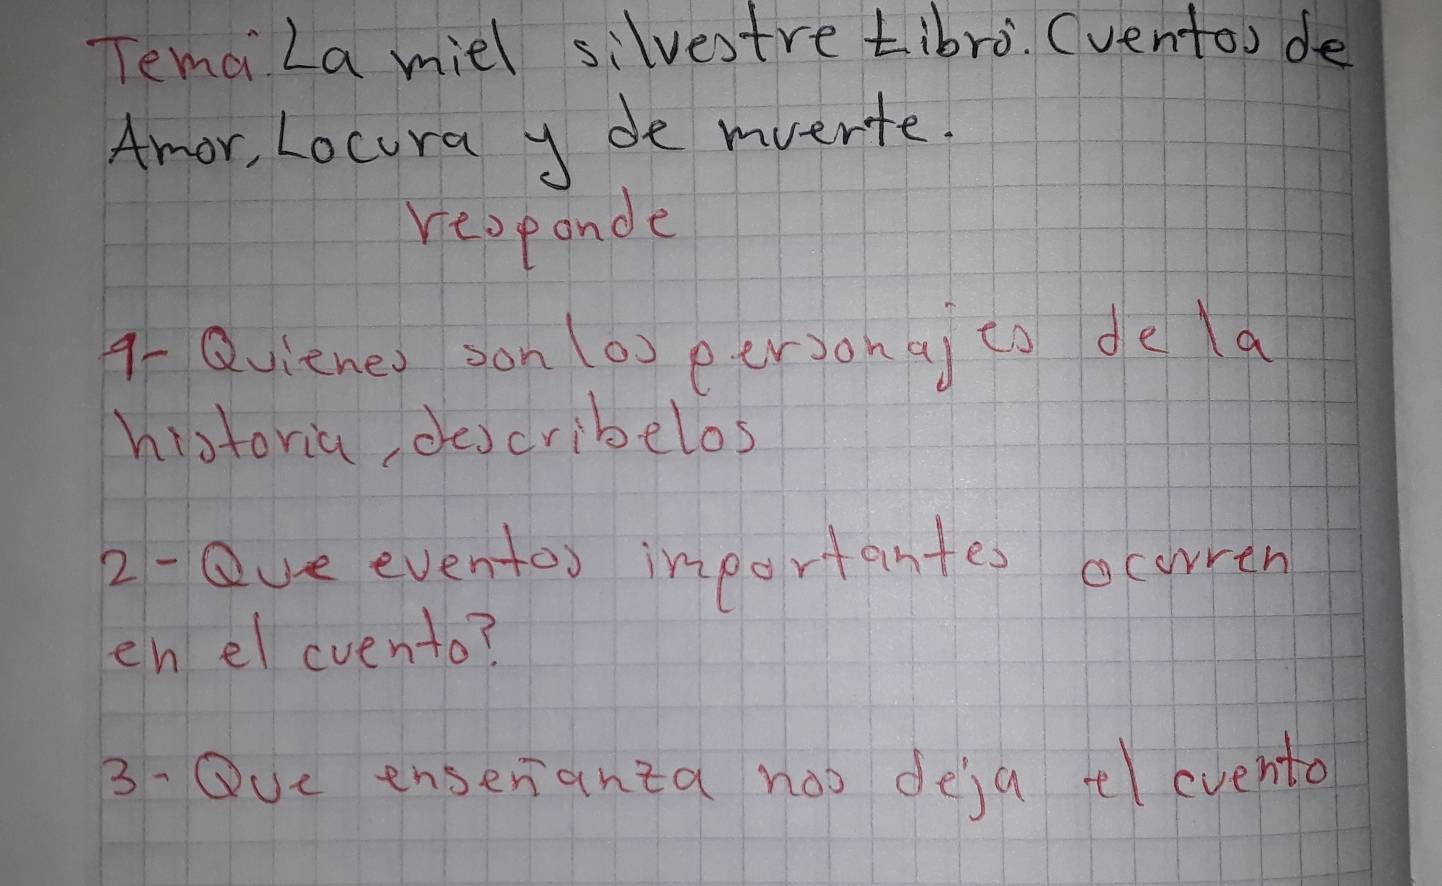 Tema. La miel silvestre Libro. Cuentos de
Amor, Locura y de muerte.
responde
1- Quienes son los personajes de la
historia, describelos
2- Que eventos importantes ocurren
en el cuento?
3- Que enseñanza nos deja el cuento